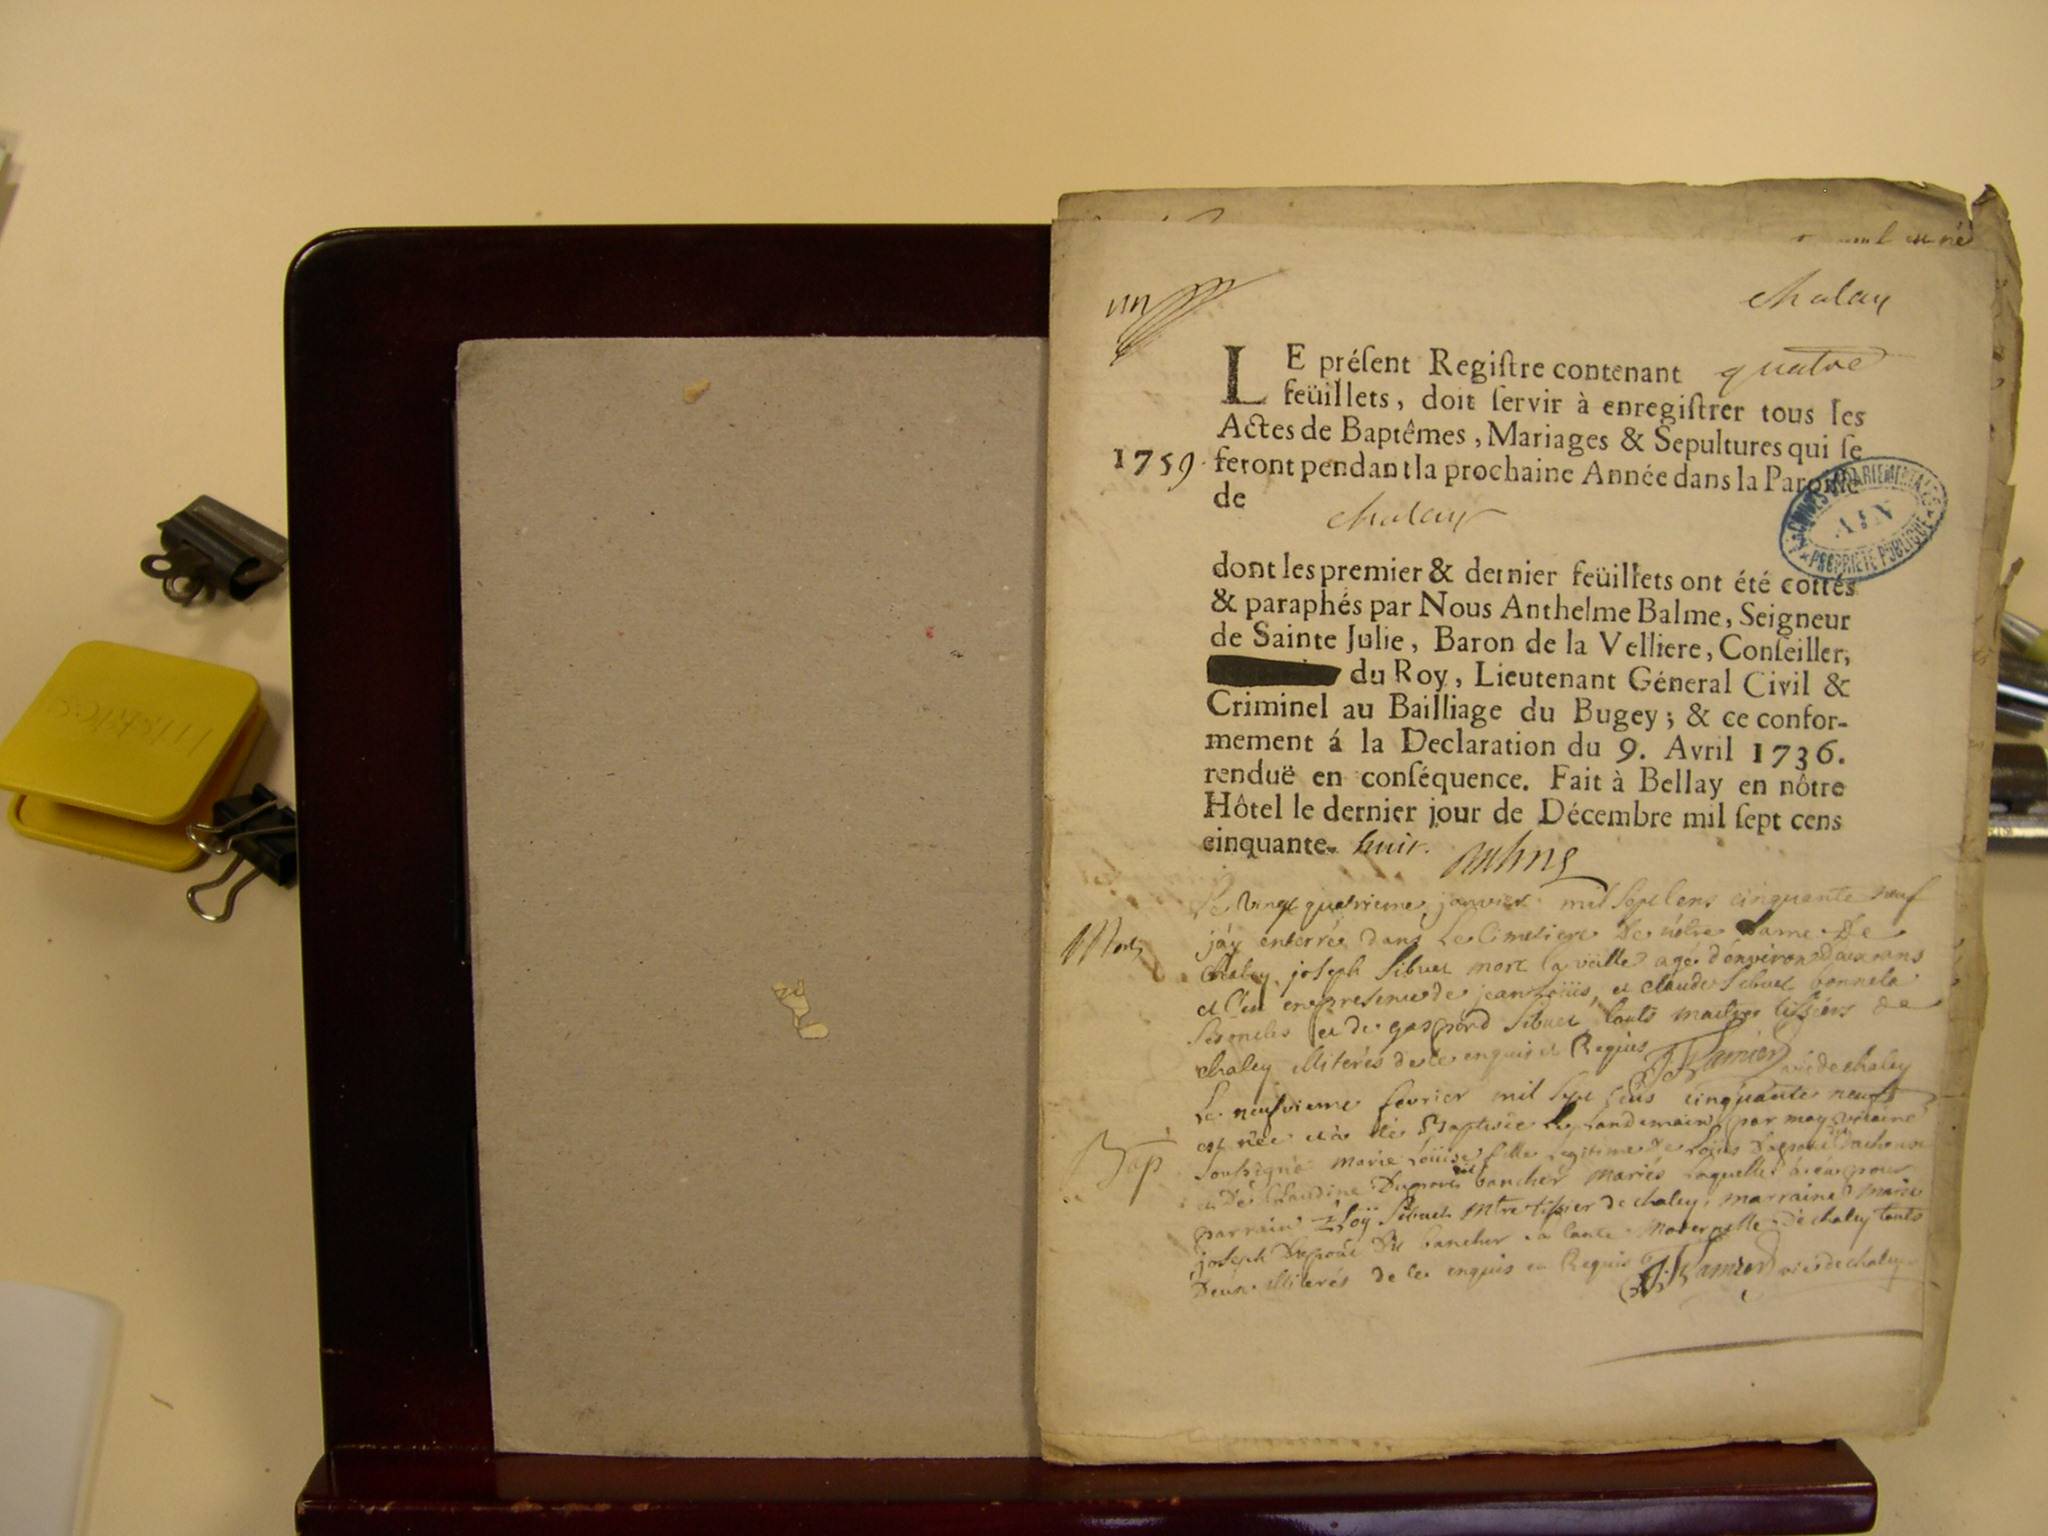 un
chalay
LE préſent Regiſtre contenant quatre
feüillets, doit ſervir à enregiſtrer tous les
Actes de Baptêmes, Mariages & Sepultures qui ſe
1759. feront pendant la prochaine Année dans la Paroiſſe
de
chalay
ARCHIVES DÉPARTEMENTALES
AIN
PROPRIÉTÉ PUBLIQUE
dont les premier & dernier feüillets ont été cottés
& paraphés par Nous Anthelme Balme, Seigneur
de Sainte Julie, Baron de la Velliere, Conſeiller,
du Roy, Lieutenant Géneral Civil &
Criminel au Bailliage du Bugey; & ce confor-
mement á la Declaration du 9. Avril 1736.
renduë en conſéquence. Fait à Bellay en nôtre
Hôtel le dernier jour de Décembre mil ſept cens
cinquante- huit.
Le vingt quatrieme janvier mil sept cens cinquante neuf
Mort
jáy enterré dans le cimetiere de nôtre dame de
chaley joseph Sibuet mort la veille agé d'environ deux ans
et C'en en presence de jean loüis, et claude Sibuet
ses oncles et de gaspard Sibuet touts maitres tissiers de
chaley illiterés de ce enquis et Requis
vic de chaley
Le neufvieme fevrier mil sept cens cinquante neuf
est née et à été Baptisée le landemain par moy vicaire
Bap
soubsigné marie Loüise fille legitime de Loüis
et de Claudine bancher mariés laquelle à eu pour
parrain Eloÿ Sibuet mtre tissier de chaley, marraine marie
joseph bancher sa tante maternelle de chaley touts
deux illiterés de ce enquis et Requis
vic de chaley